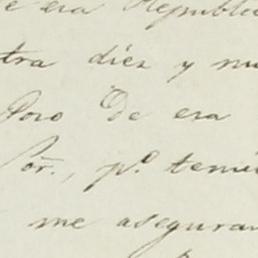 e esa Republic
tra diez y nu
Poro De esa
Sor., p.º temie
me aseguran